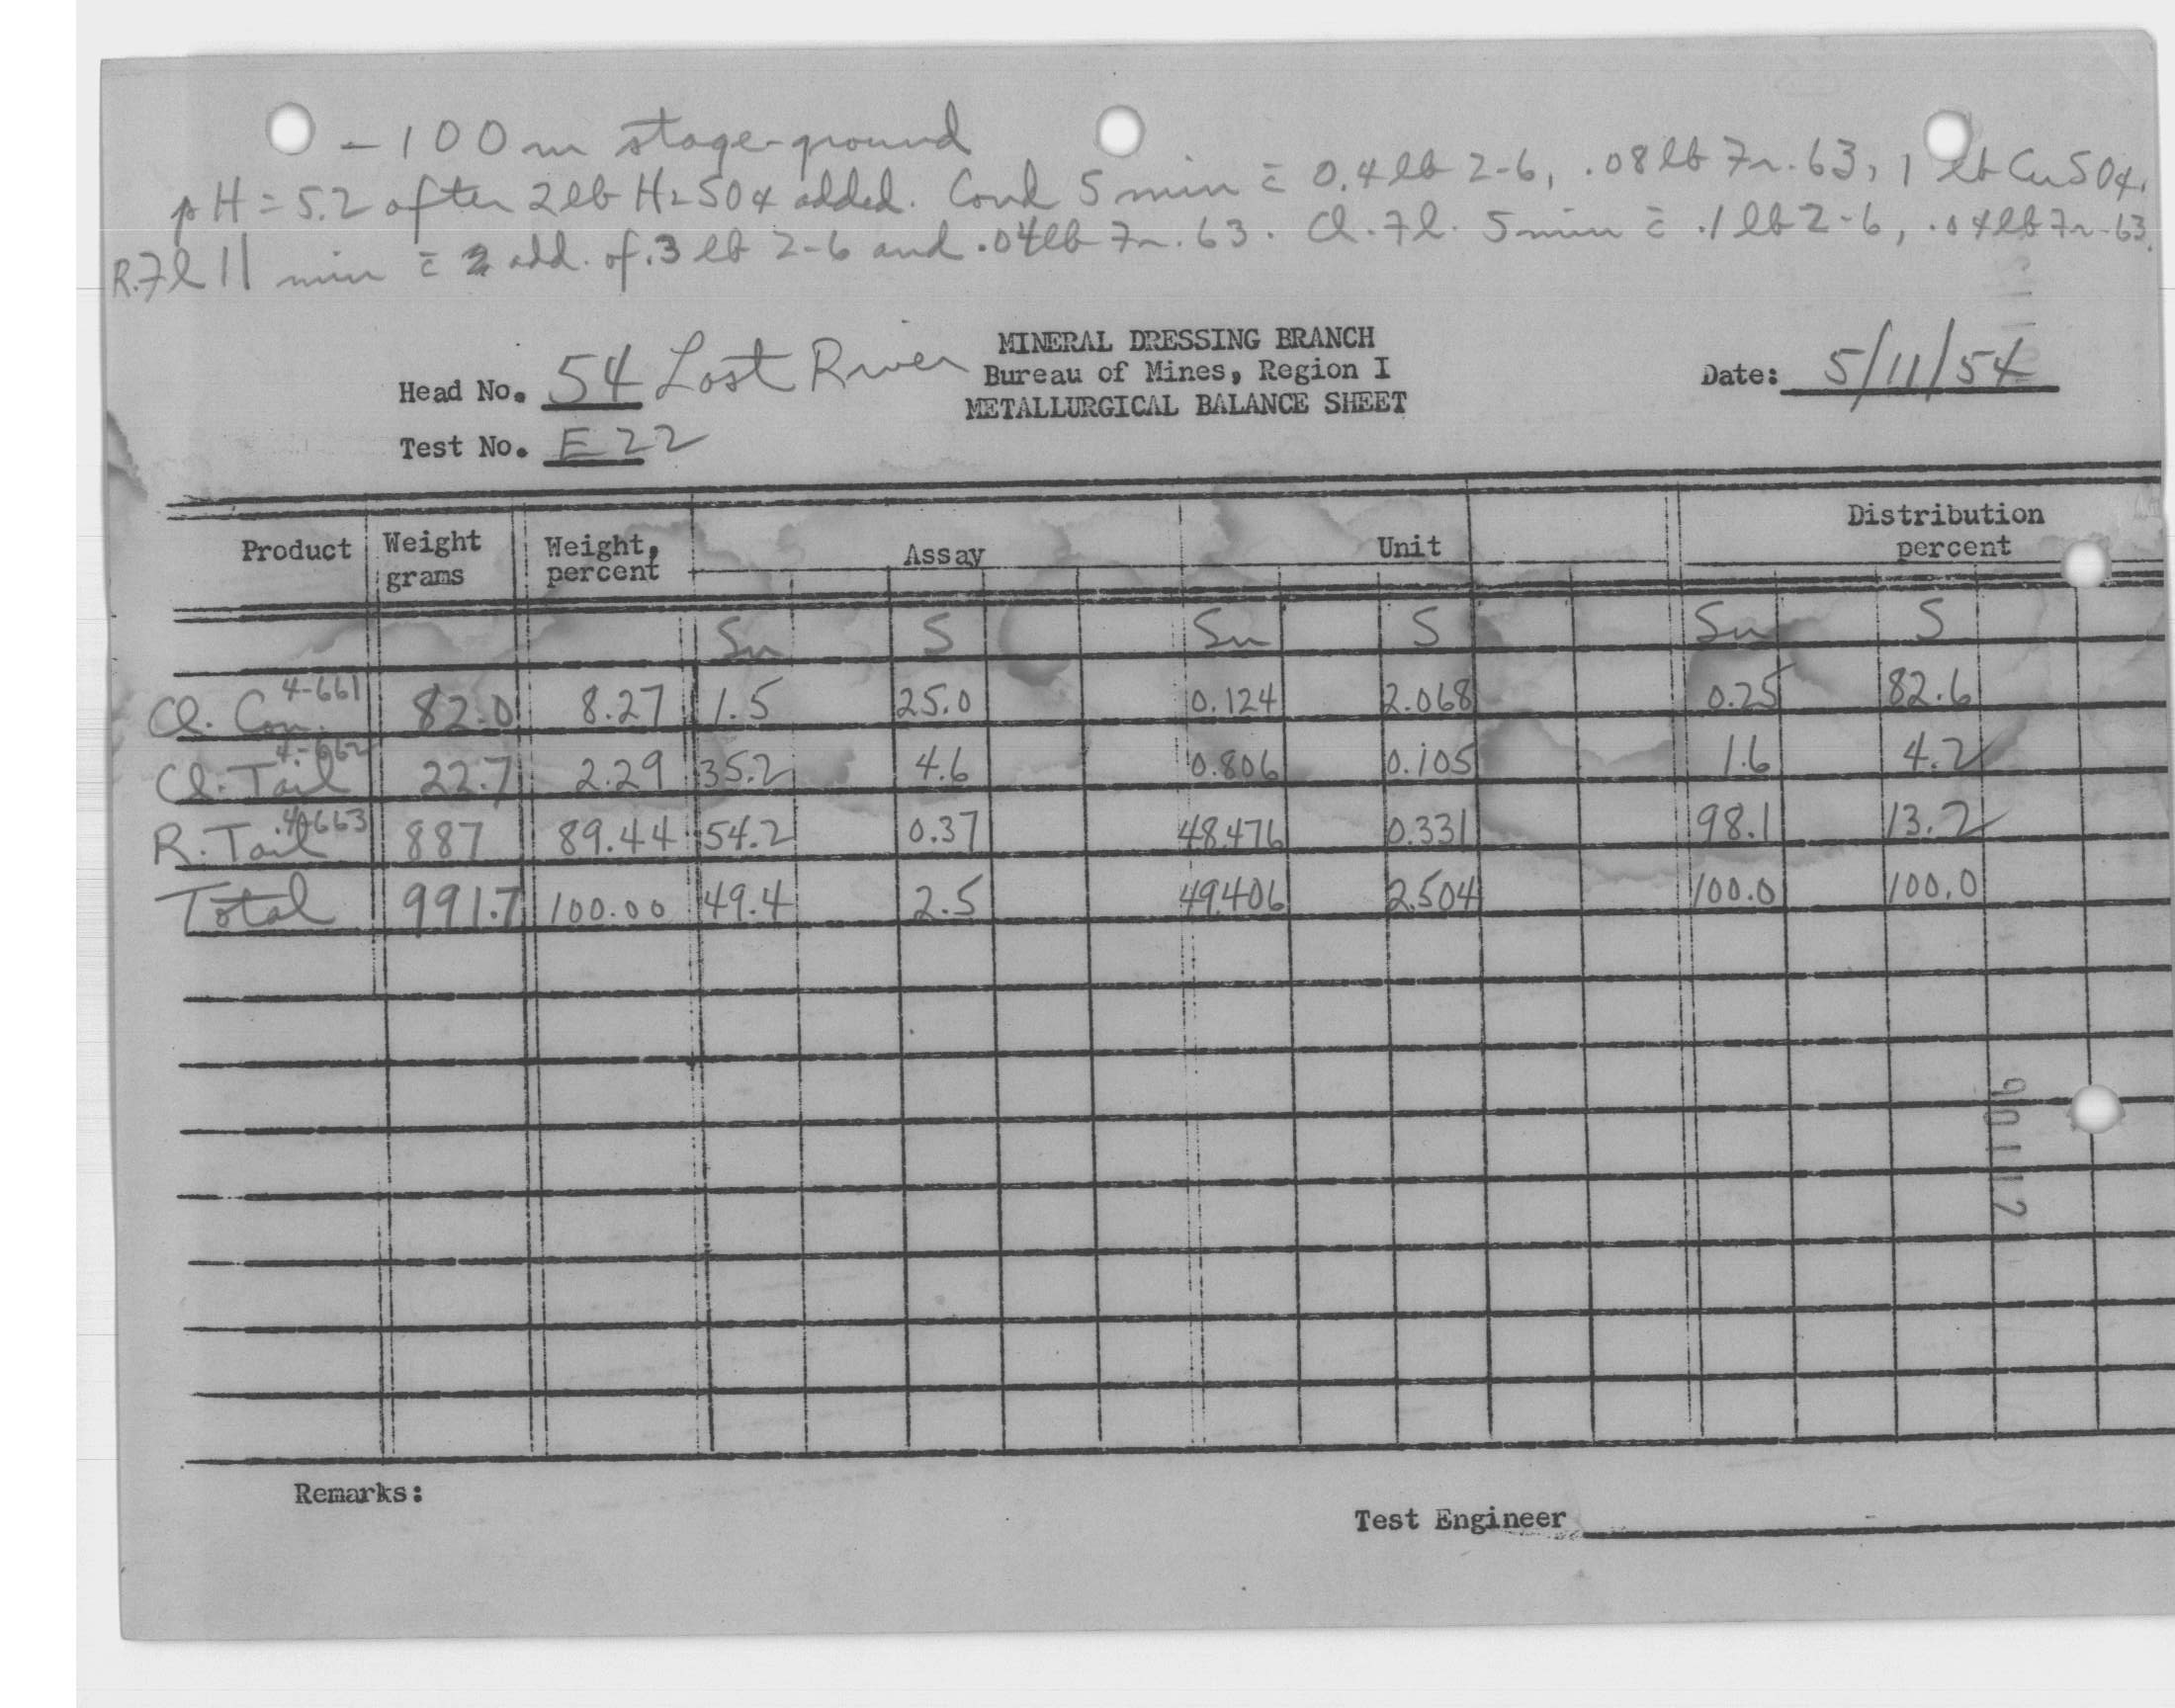 - 100 m stage-ground
pH = 5.2 after 2 lb H2SO4 added. Cond 5 min c̄ 0.4 lb Z-6, .08 lb Fr. 63, 1 lb CuSO4.
R.Fl 11 min c̄ 2 add. of .3 lb Z-6 and .04 lb Fr. 63. Cl. Fl. 5 min c̄ .1 lb Z-6, .04 lb Fr. 63.
MINERAL DRESSING BRANCH
Bureau of Mines, Region I
METALLURGICAL BALANCE SHEET
Head No. 54 Lost River
Date: 5/11/54
Test No. E 22
Product Weight grams Weight, percent Assay Unit Distribution percent
Sn S Sn S Sn S
Cl. Con. 4-661 82.0 8.27 1.5 25.0 0.124 2.068 0.25 82.6
Cl. Tail 4-662 22.7 2.29 35.2 4.6 0.806 0.105 1.6 4.2
R. Tail 4-663 887 89.44 54.2 0.37 48.476 0.331 98.1 13.2
Total 991.7 100.00 49.4 2.5 49.406 2.504 100.0 100.0
90112
Remarks:
Test Engineer